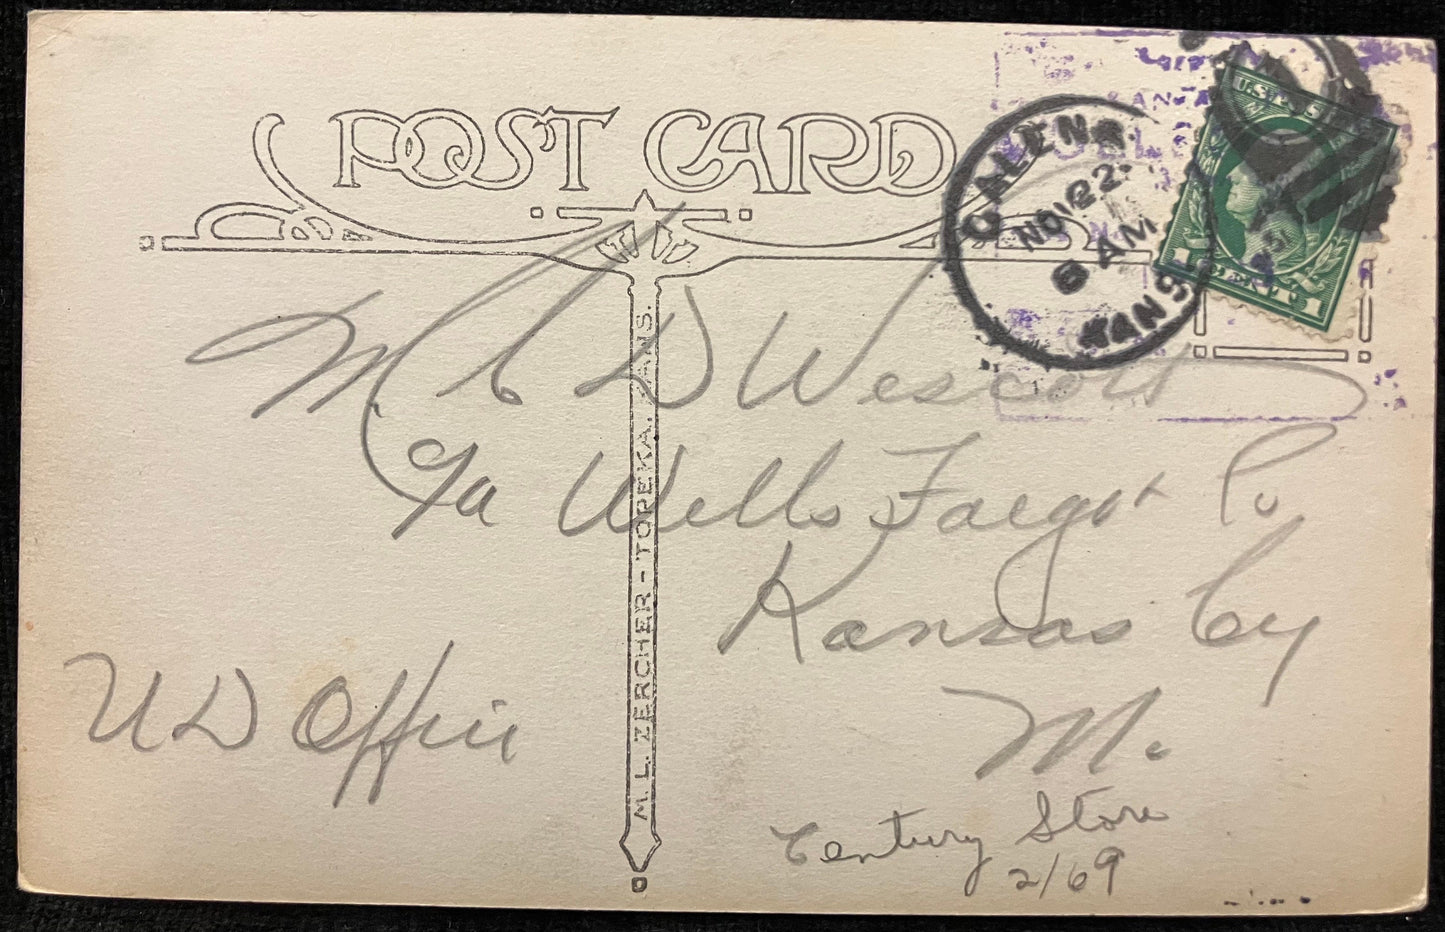 POST CARD
U.S. POS
1 CENT 1
GALENA
NOV 22
6 AM
KANS
M. L. ZERCHER - TOPEKA, KANS.
M C D Wescott
c/o Wells Fargo + Co
Kansas Cy
Mo
U D Office
Century Store
2/69